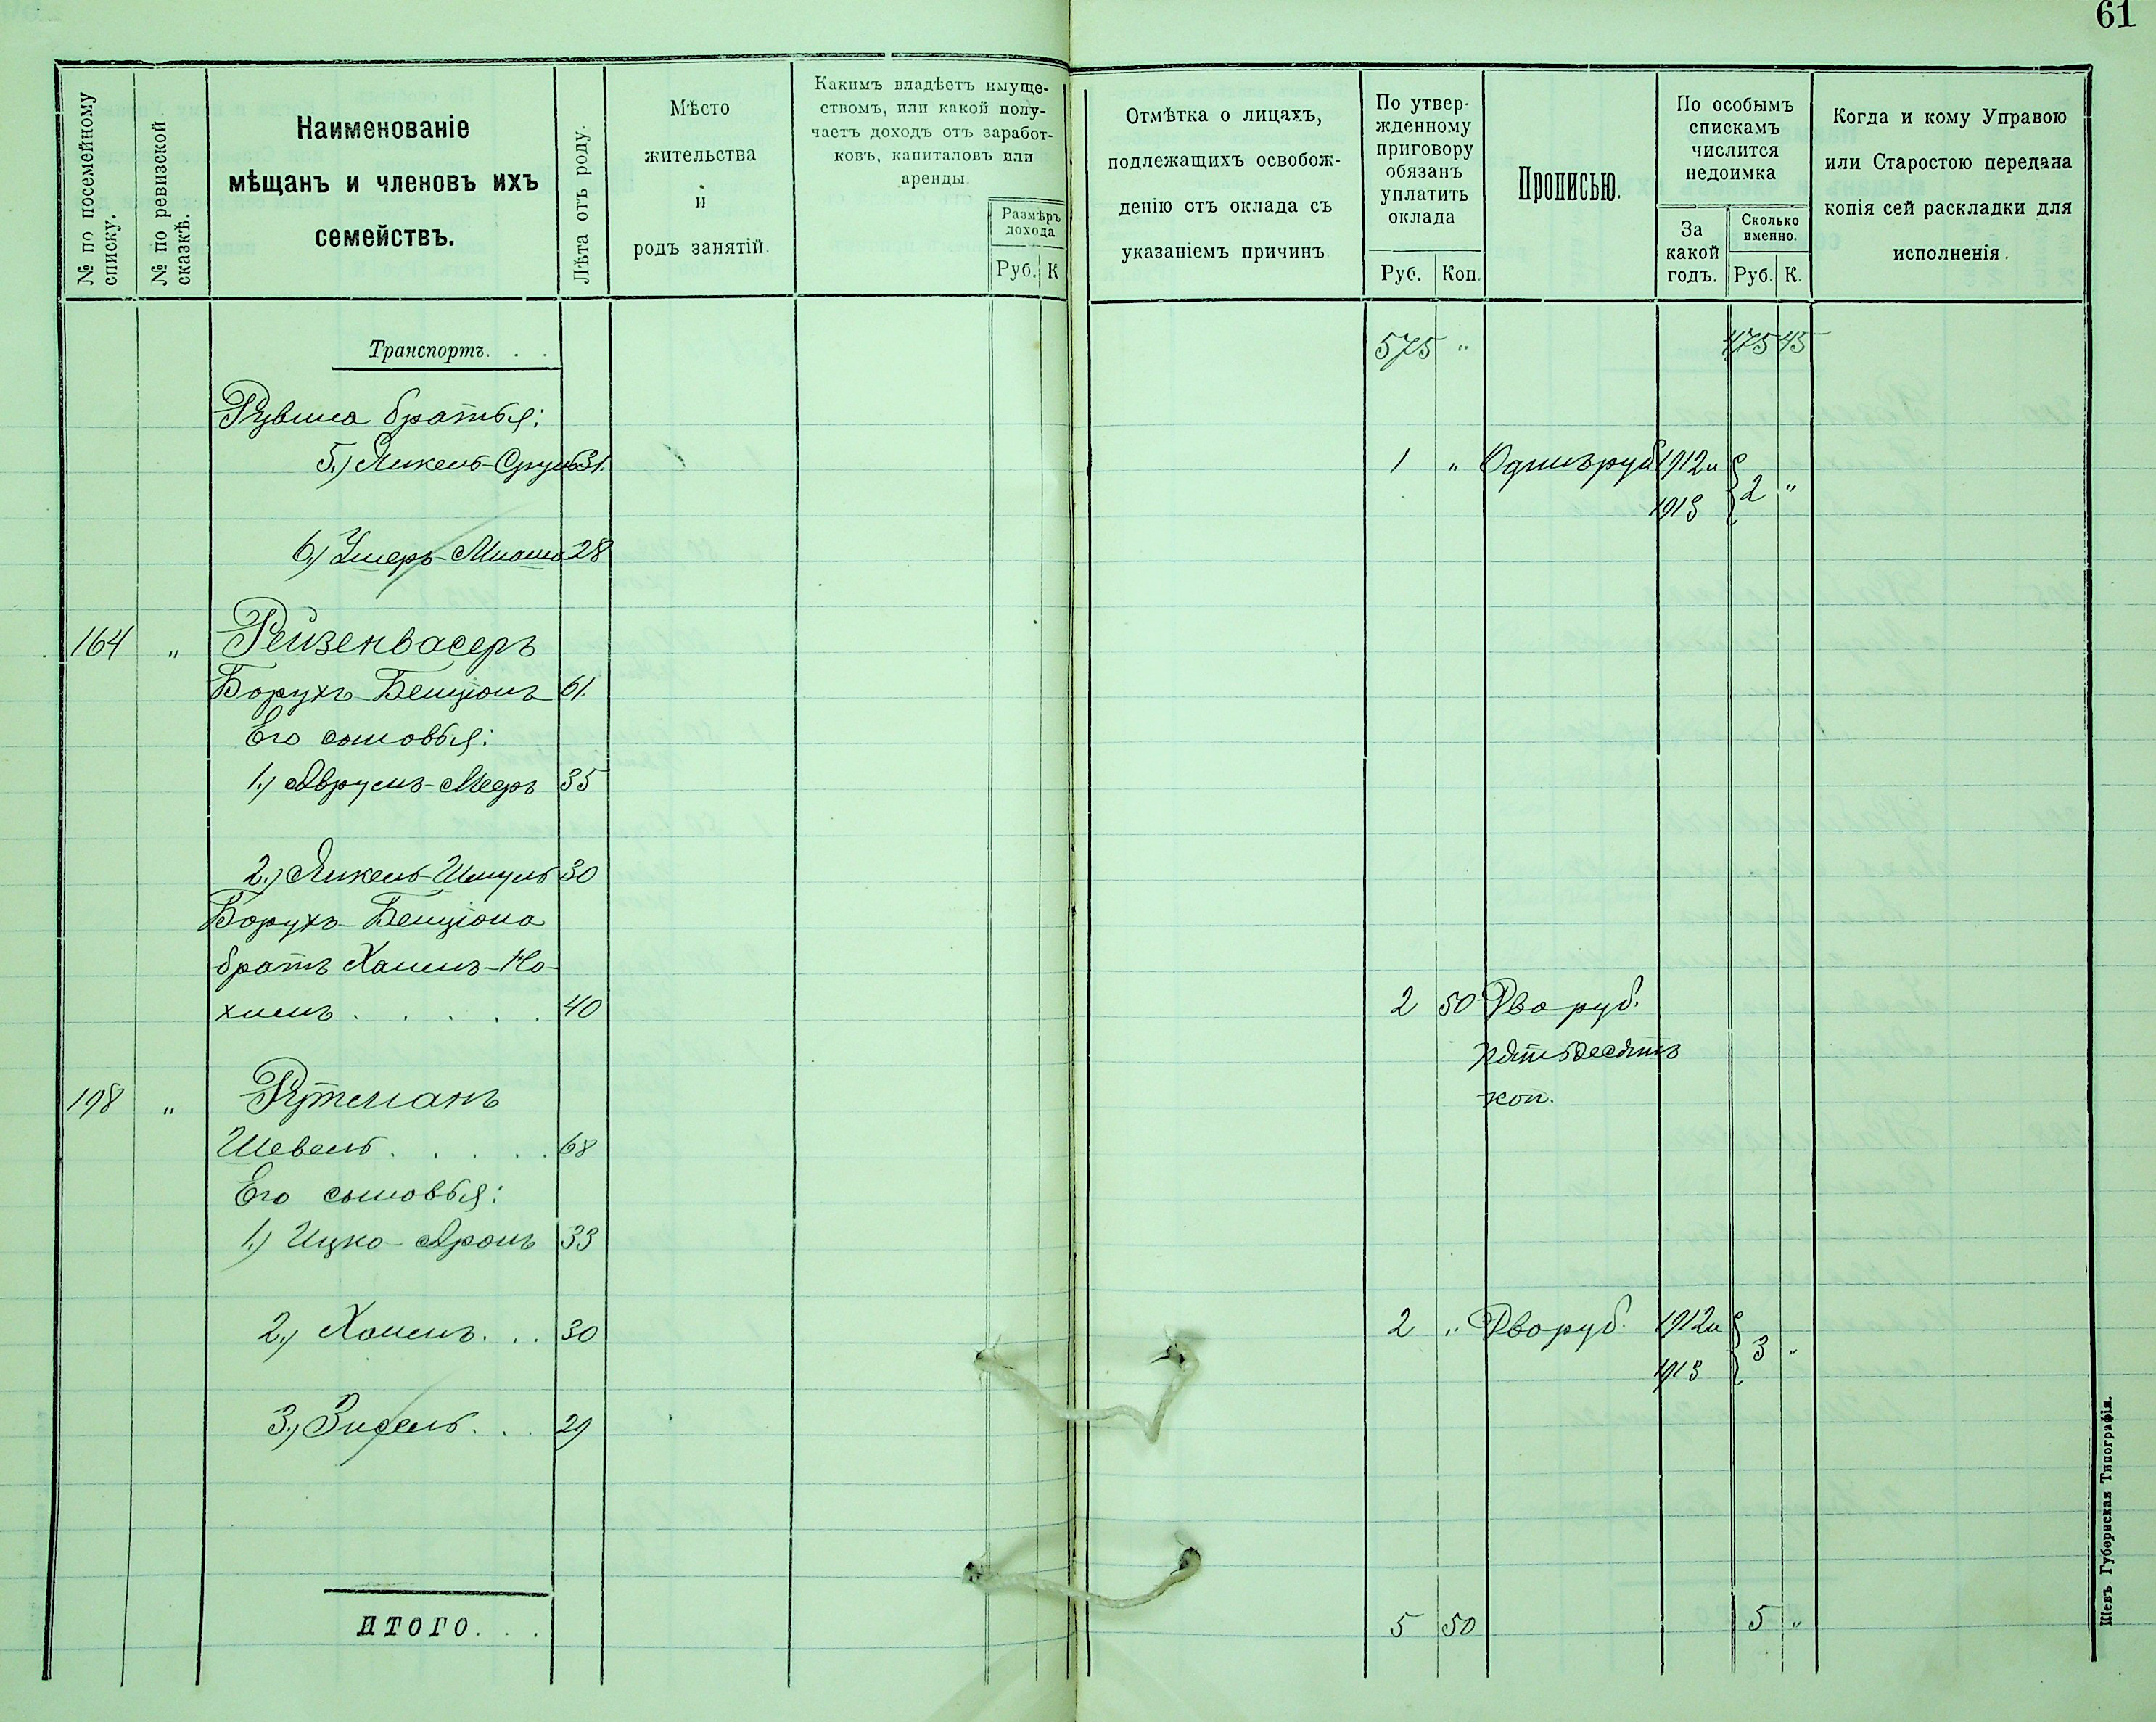 61
№ по посемейному списку.
№ по ревизской сказкѣ.
Наименованіе
мѣщанъ и членовъ ихъ
семействъ.
Лѣта отъ роду.
Мѣсто
жительства
и
родъ занятій.
Какимъ владѣетъ имуще-
ствомъ, или какой полу-
чаетъ доходъ отъ заработ-
ковъ, капиталовъ или
аренды.
Размѣръ
дохода
Руб. К
Отмѣтка о лицахъ,
подлежащихъ освобож-
денію отъ оклада съ
указаніемъ причинъ
По утвер-
жденному
приговору
обязанъ
уплатить
оклада
Руб. Коп.
Прописью.
По особымъ
спискамъ
числится
недоимка
За
какой
годъ.
Сколько
именно.
Руб. К.
Когда и кому Управою
или Старостою передана
копія сей раскладки для
исполненія.
Транспортъ. . . 575 " 475 45
Рувина братья:
5.) Янкель-Сруль 31. 1 " Одинъ руб. 1912 и
1913 2 "
6.) Ушеръ-Мошко 28
164 " Рейзенвасеръ
Борухъ Бенціонъ 61.
Его сыновья:
1.) Аврумъ-Мееръ 35
2.) Янкель-Шмуль 30
Борухъ-Бенціона
братъ Хаимъ-Но-
химъ . . . . . 40 2 50 Два руб.
пятьдесятъ
198 " Рутманъ коп.
Шевель . . . . . 68
Его сыновья:
1.) Ицко-Аронъ 33
2.) Хаимъ. . . 30 2 " Два руб. 1912 и
1913 3 "
3.) Зисель. . . 29
ИТОГО. . . 5 50 5 "
Кіевъ. Губернская Типографія.